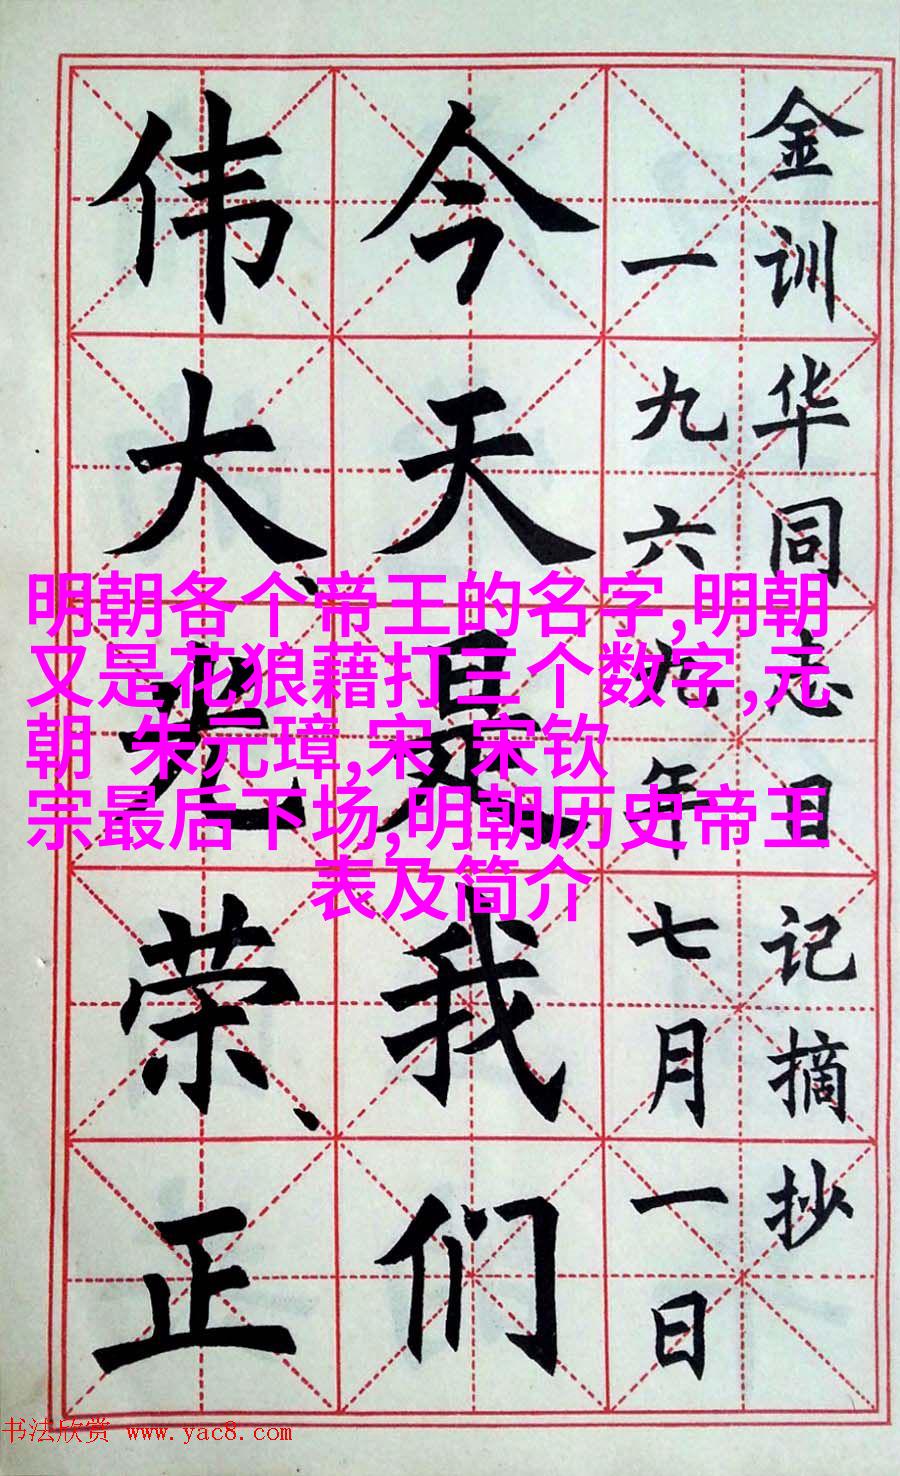 金训华同志日记摘抄
一九六 年七月一日
今天是我们
伟大、光荣、正
明朝各个帝王的名字,明朝
又是花狼藉打三个数字,元
朝 朱元璋,宋 宋钦
宗最后下场,明朝历史帝王
表及简介
书法欣赏 www.yac8.com